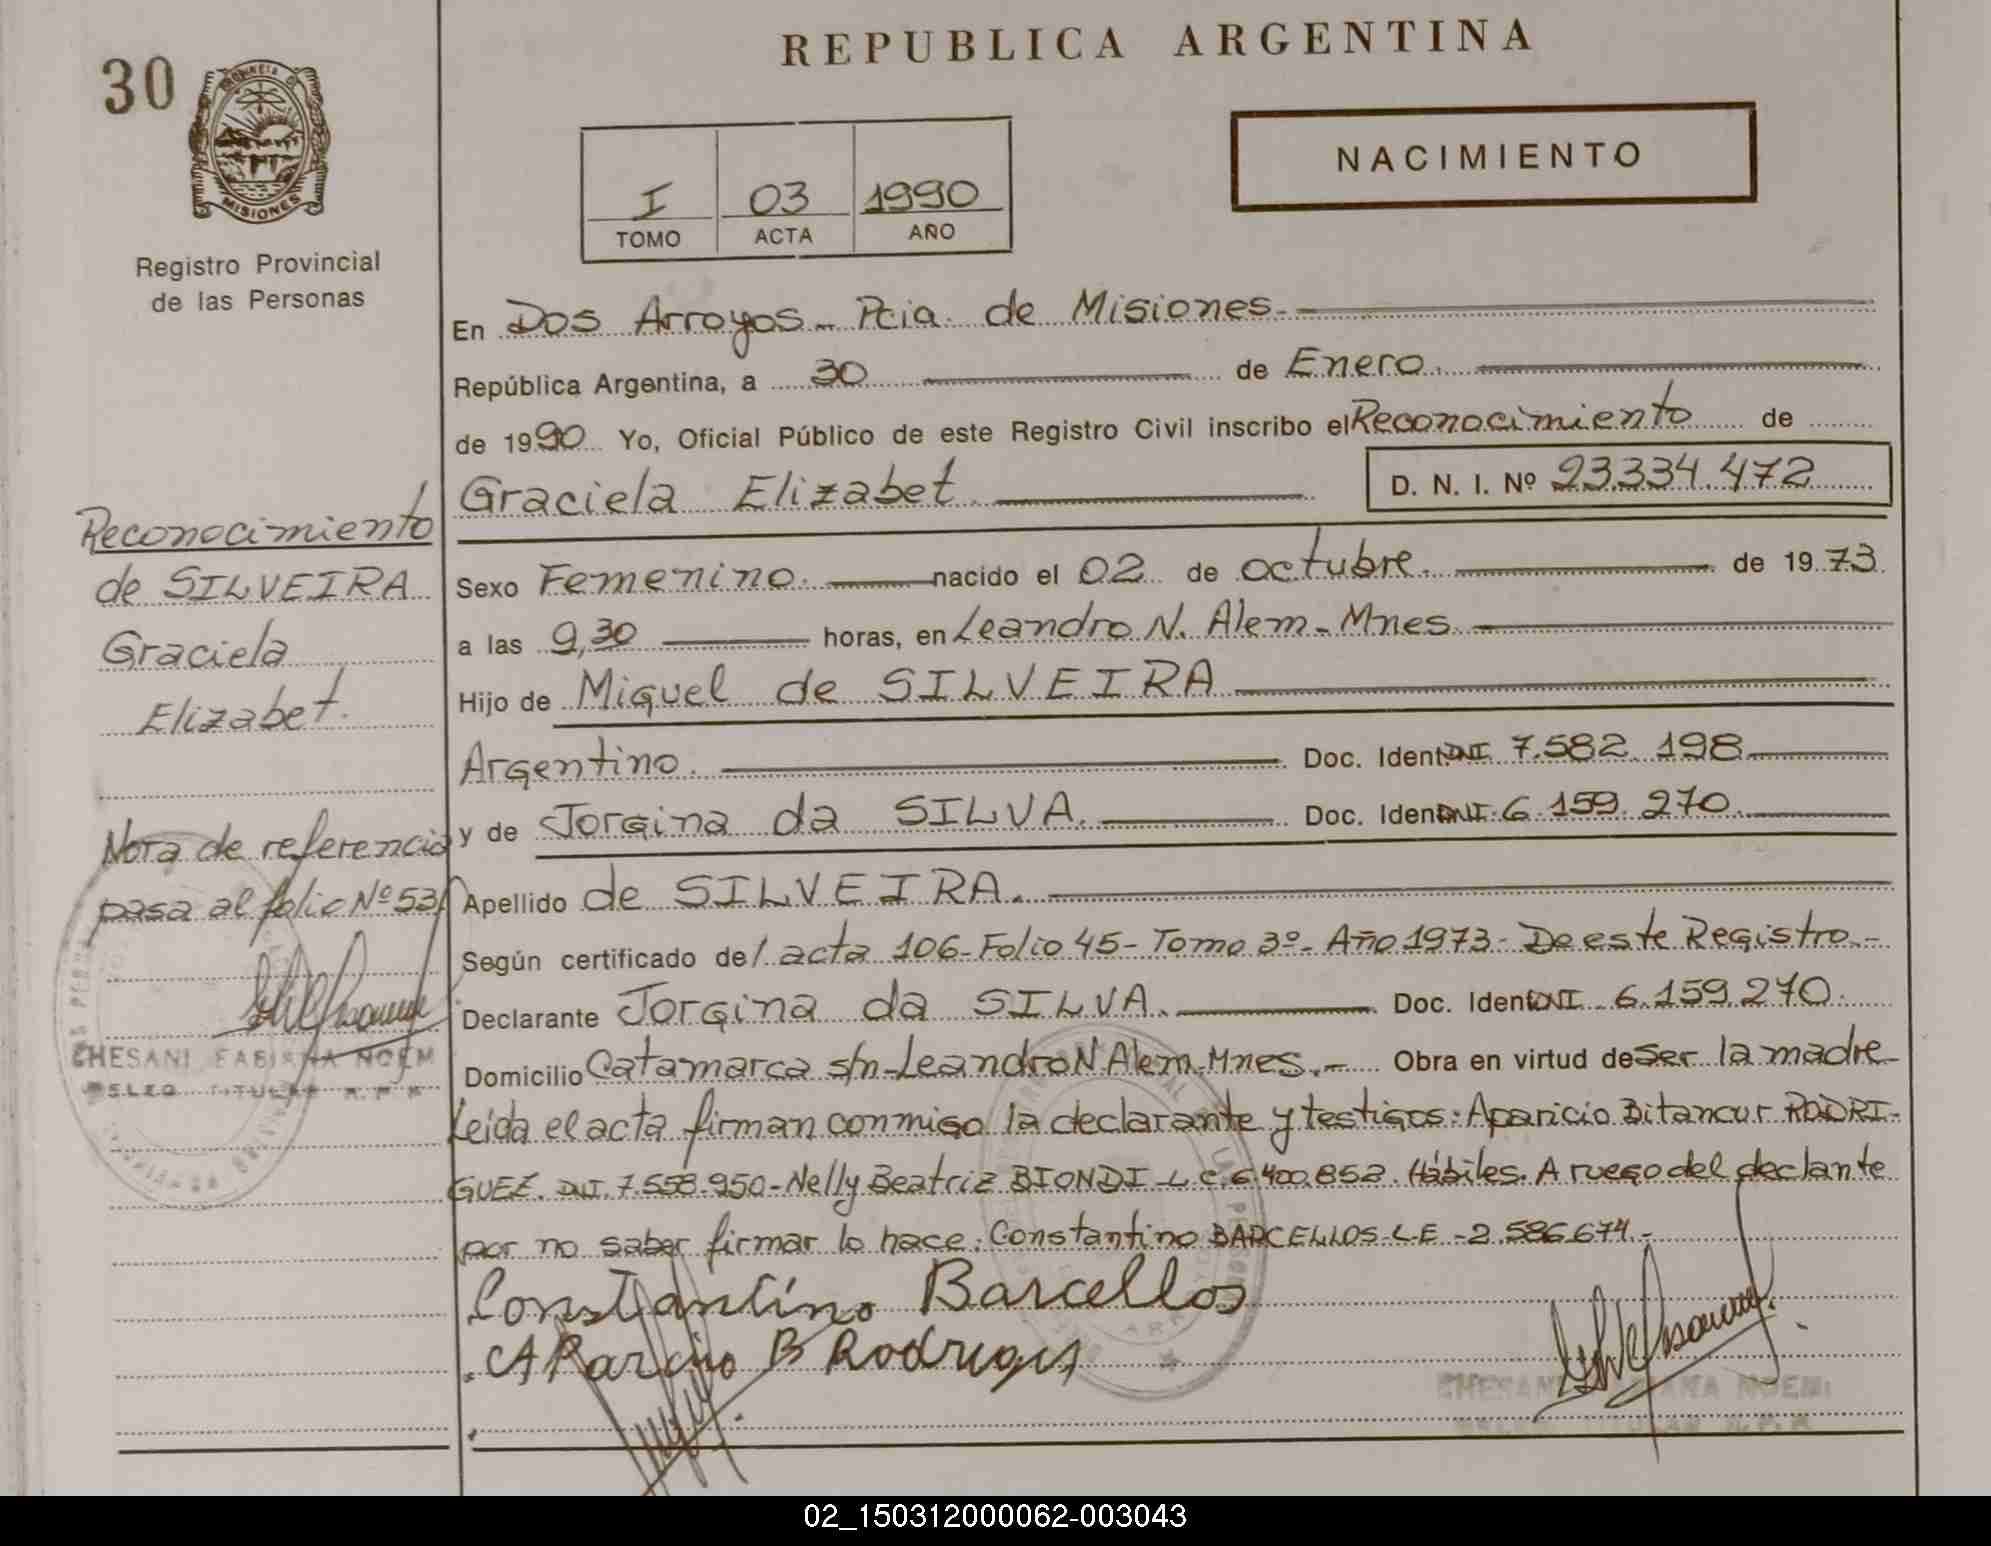 REPUBLICA ARGENTINA
30
MISIONES
Registro Provincial
de las Personas
I 03 1990
TOMO ACTA AÑO
NACIMIENTO
En Dos Arroyos - Pcia. de Misiones.
República Argentina, a 30 de Enero.
de 1990 Yo, Oficial Público de este Registro Civil inscribo el Reconocimiento de
Graciela Elizabet D. N. I. Nº 23.334.472
Sexo Femenino. nacido el 02 de octubre. de 1973
a las 9,30 horas, en Leandro N. Alem - Mnes
Hijo de Miguel de SILVEIRA
Argentino. Doc. Ident. DNI 7.582.198
y de Jorgina da SILVA. Doc. Iden DNI. 6.159.270.
Apellido de SILVEIRA.
Según certificado del acta 106 - Folio 45 - Tomo 3º - Año 1973 - De este Registro.-
Declarante Jorgina da SILVA. Doc. Ident DNI 6.159.270.
Domicilio Catamarca s/n - Leandro N Alem - Mnes.- Obra en virtud de Ser la madre
Leída el acta firman conmigo la declarante y testigos: Aparicio Bitancur RODRI-
GUEZ. DNI. 7.558.950 - Nelly Beatriz BIONDI - L C. 6.400.852. Hábiles. A ruego del declante
por no saber firmar lo hace: Constantino BARCELLOS - L E - 2.586.674.-
Constantino Barcellos
Aparicio B Rodrigues
Reconocimiento
de SILVEIRA
Graciela
Elizabet.
Nota de referencia
pasa al folio Nº 53
CHESANI FABIANA NOEMI
TITULAR R.P.P.
CHESANI FABIANA NOEMI
02_150312000062-003043